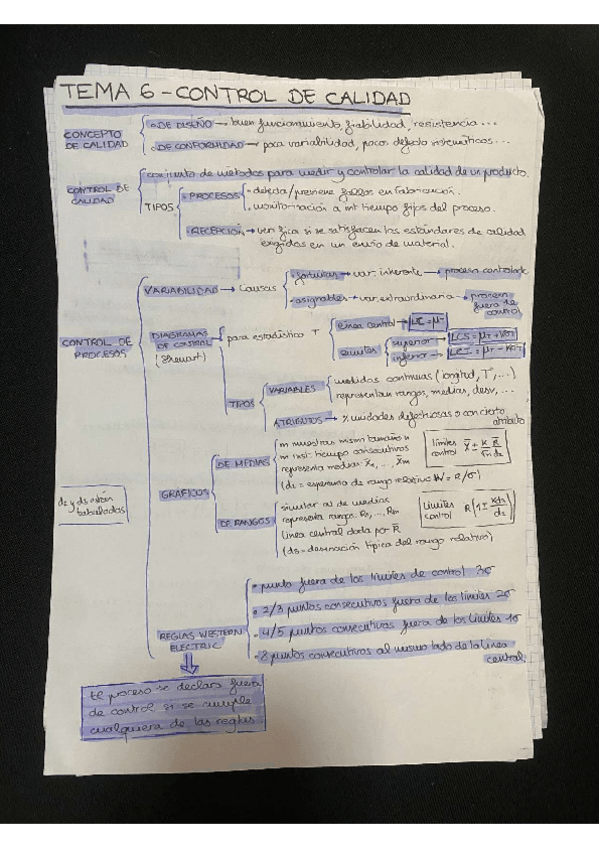 TEMA 6 - CONTROL DE CALIDAD
CONCEPTO DE CALIDAD
DE DISEÑO → buen funcionamiento, fiabilidad, resistencia...
DE CONFORMIDAD → poca variabilidad, pocos defectos sistemáticos...
CONTROL DE CALIDAD
conjunto de métodos para medir y controlar la calidad de un producto.
TIPOS
PROCESOS
• detecta/previene fallos en fabricación.
• monitorización a int tiempo fijos del proceso.
RECEPCIÓN → verifica si se satisfacen los estándares de calidad
exigidos en un envío de material.
CONTROL DE PROCESOS
VARIABILIDAD → Causas
• fortuitas → var. inherente → proceso controlado
• asignables → var. extraordinaria → proceso fuera de control
DIAGRAMAS DE CONTROL
(Shewart)
para estadístico T
línea central → LC = μT
superior → LCS = μT + KσT
inferior → LCI = μT - KσT
TIPOS
VARIABLES → medidas continuas (longitud, Tª, ...)
representan rangos, medias, desv, ...
ATRIBUTOS → % unidades defectuosas o con cierto atributo
GRÁFICOS
DE MEDIAS
m muestras mismo tamaño n
m inst. tiempo consecutivos
representa medias x̄1, ..., x̄m
(d2 = esperanza de rango relativo W = R/σ)
límites control
DE RANGOS
similar al de medias
representa rangos R1, ..., Rm
línea central dada por R̄
(d3 = desviación típica del rango relativo)
Límites control
d2 y d3 están tabulados
REGLAS WESTERN ELECTRIC
• punto fuera de los límites de control 3σ
• 2/3 puntos consecutivos fuera de los límites 2σ
• 4/5 puntos consecutivos fuera de los límites 1σ
• 8 puntos consecutivos al mismo lado de la línea central.
El proceso se declara fuera
de control si se cumple
cualquiera de las reglas